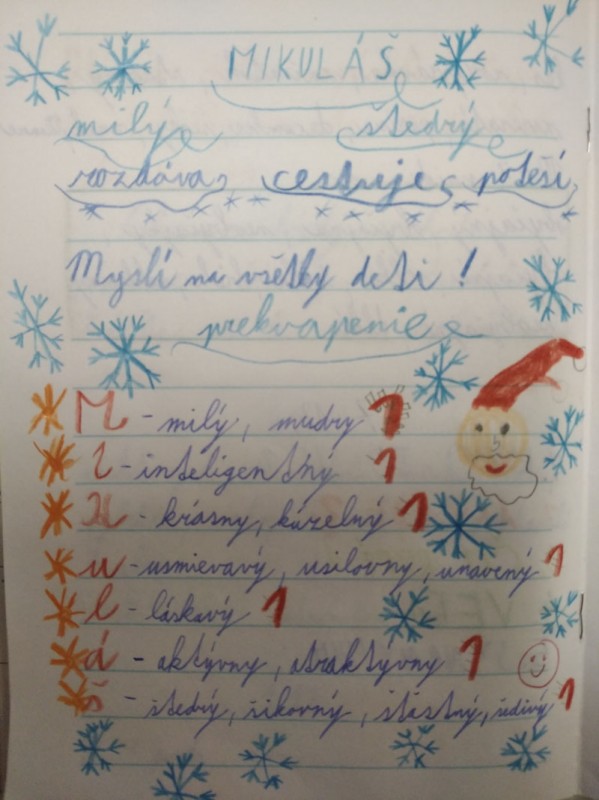 MIKULÁŠ
milý štedrý
rozdáva, cestuje, poteší,
Myslí na všetky deti!
prekvapenie
M - milý, mudry 1
i - inteligentný 1
K - krásny, kúzelný 1
u - usmievavý, usilovny, unavený 1
l - láskavý 1
á - aktývny, atraktývny 1
š - štedrý, šikovný, štastný, šedivý 1